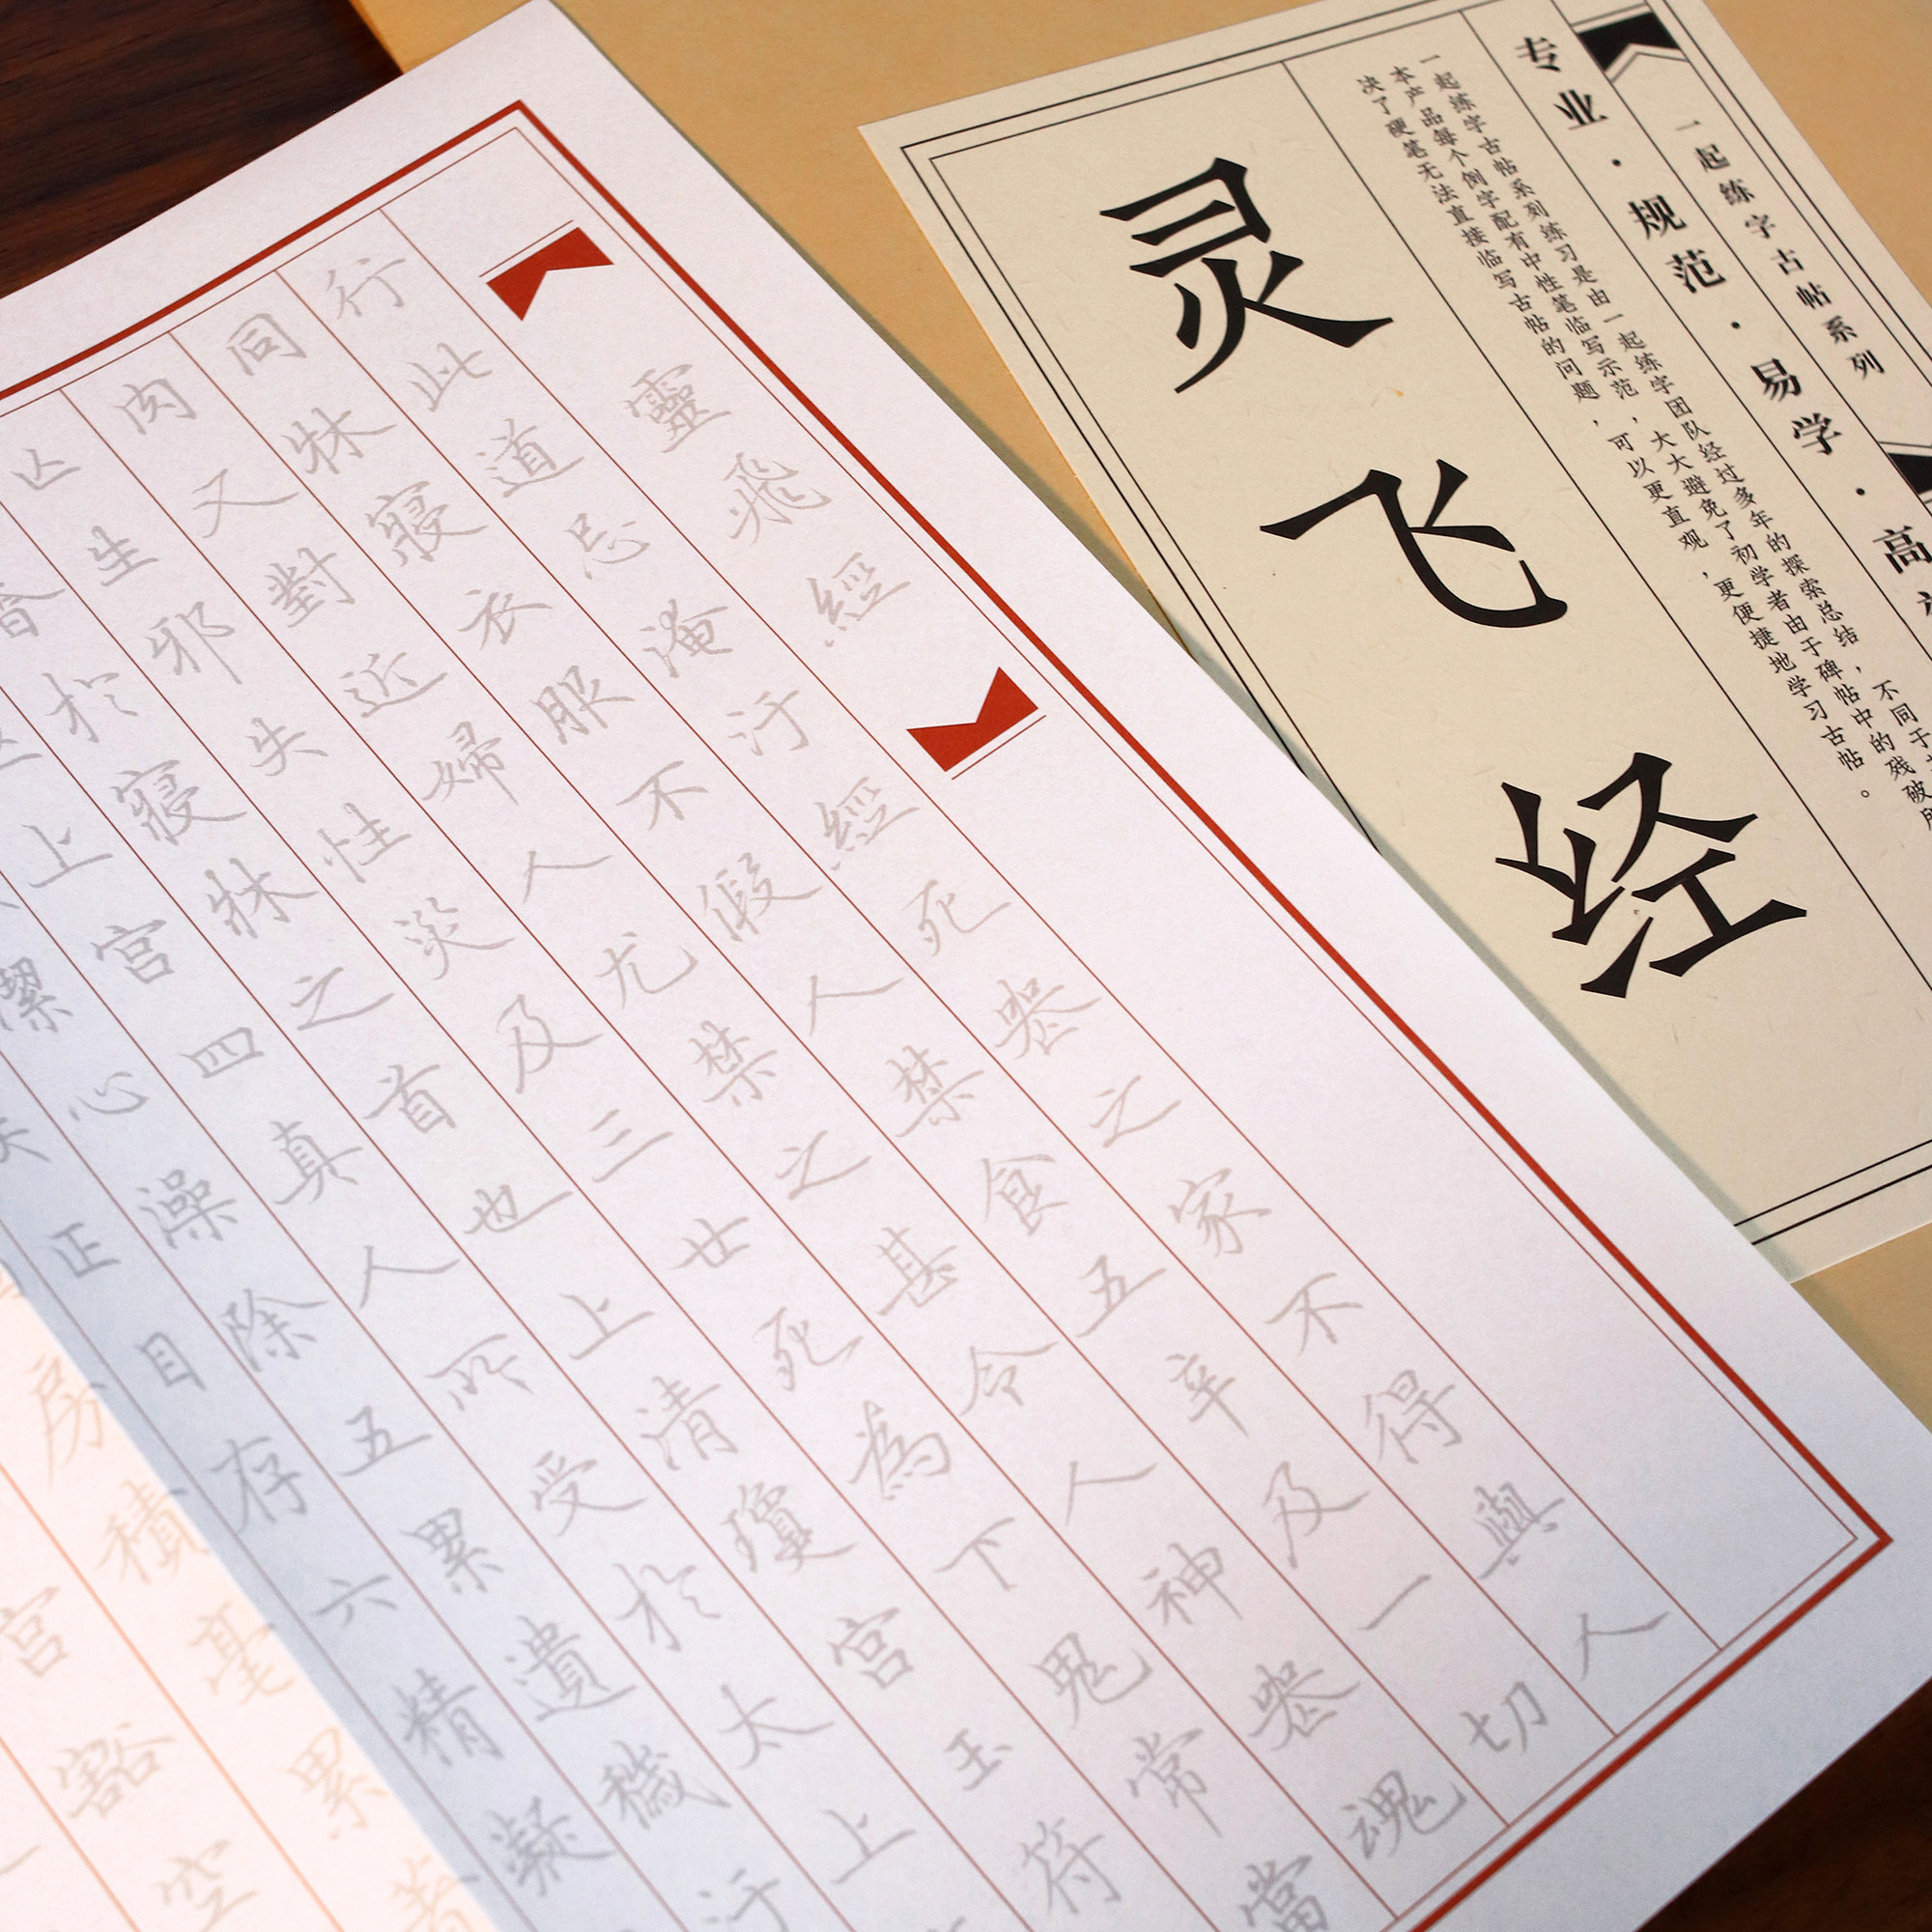 一起练字古帖系列
专业·规范·易学·高
一起练字古帖系列练习是由一起练字团队经过多年的探索总结，不同于
本产品每个例字配有中性笔临写示范，大大避免了初学者由于碑帖中的残破所
决了硬笔无法直接临写古帖的问题，可以更直观，更便捷地学习古帖。
灵飞经
靈飛經
行此道忌淹汙經死喪之家不得與人
同牀寢衣服不假人禁食五辛及一切
肉又對近婦人尤禁之甚令人神喪魂
亡生邪失性災及三世死為下鬼常當
香於寢牀之首也上清瓊宮玉符
上宮四真人所受於太上
潔心澡除五累遺穢汙
正目存六精凝
房積毫累著
宮豁空